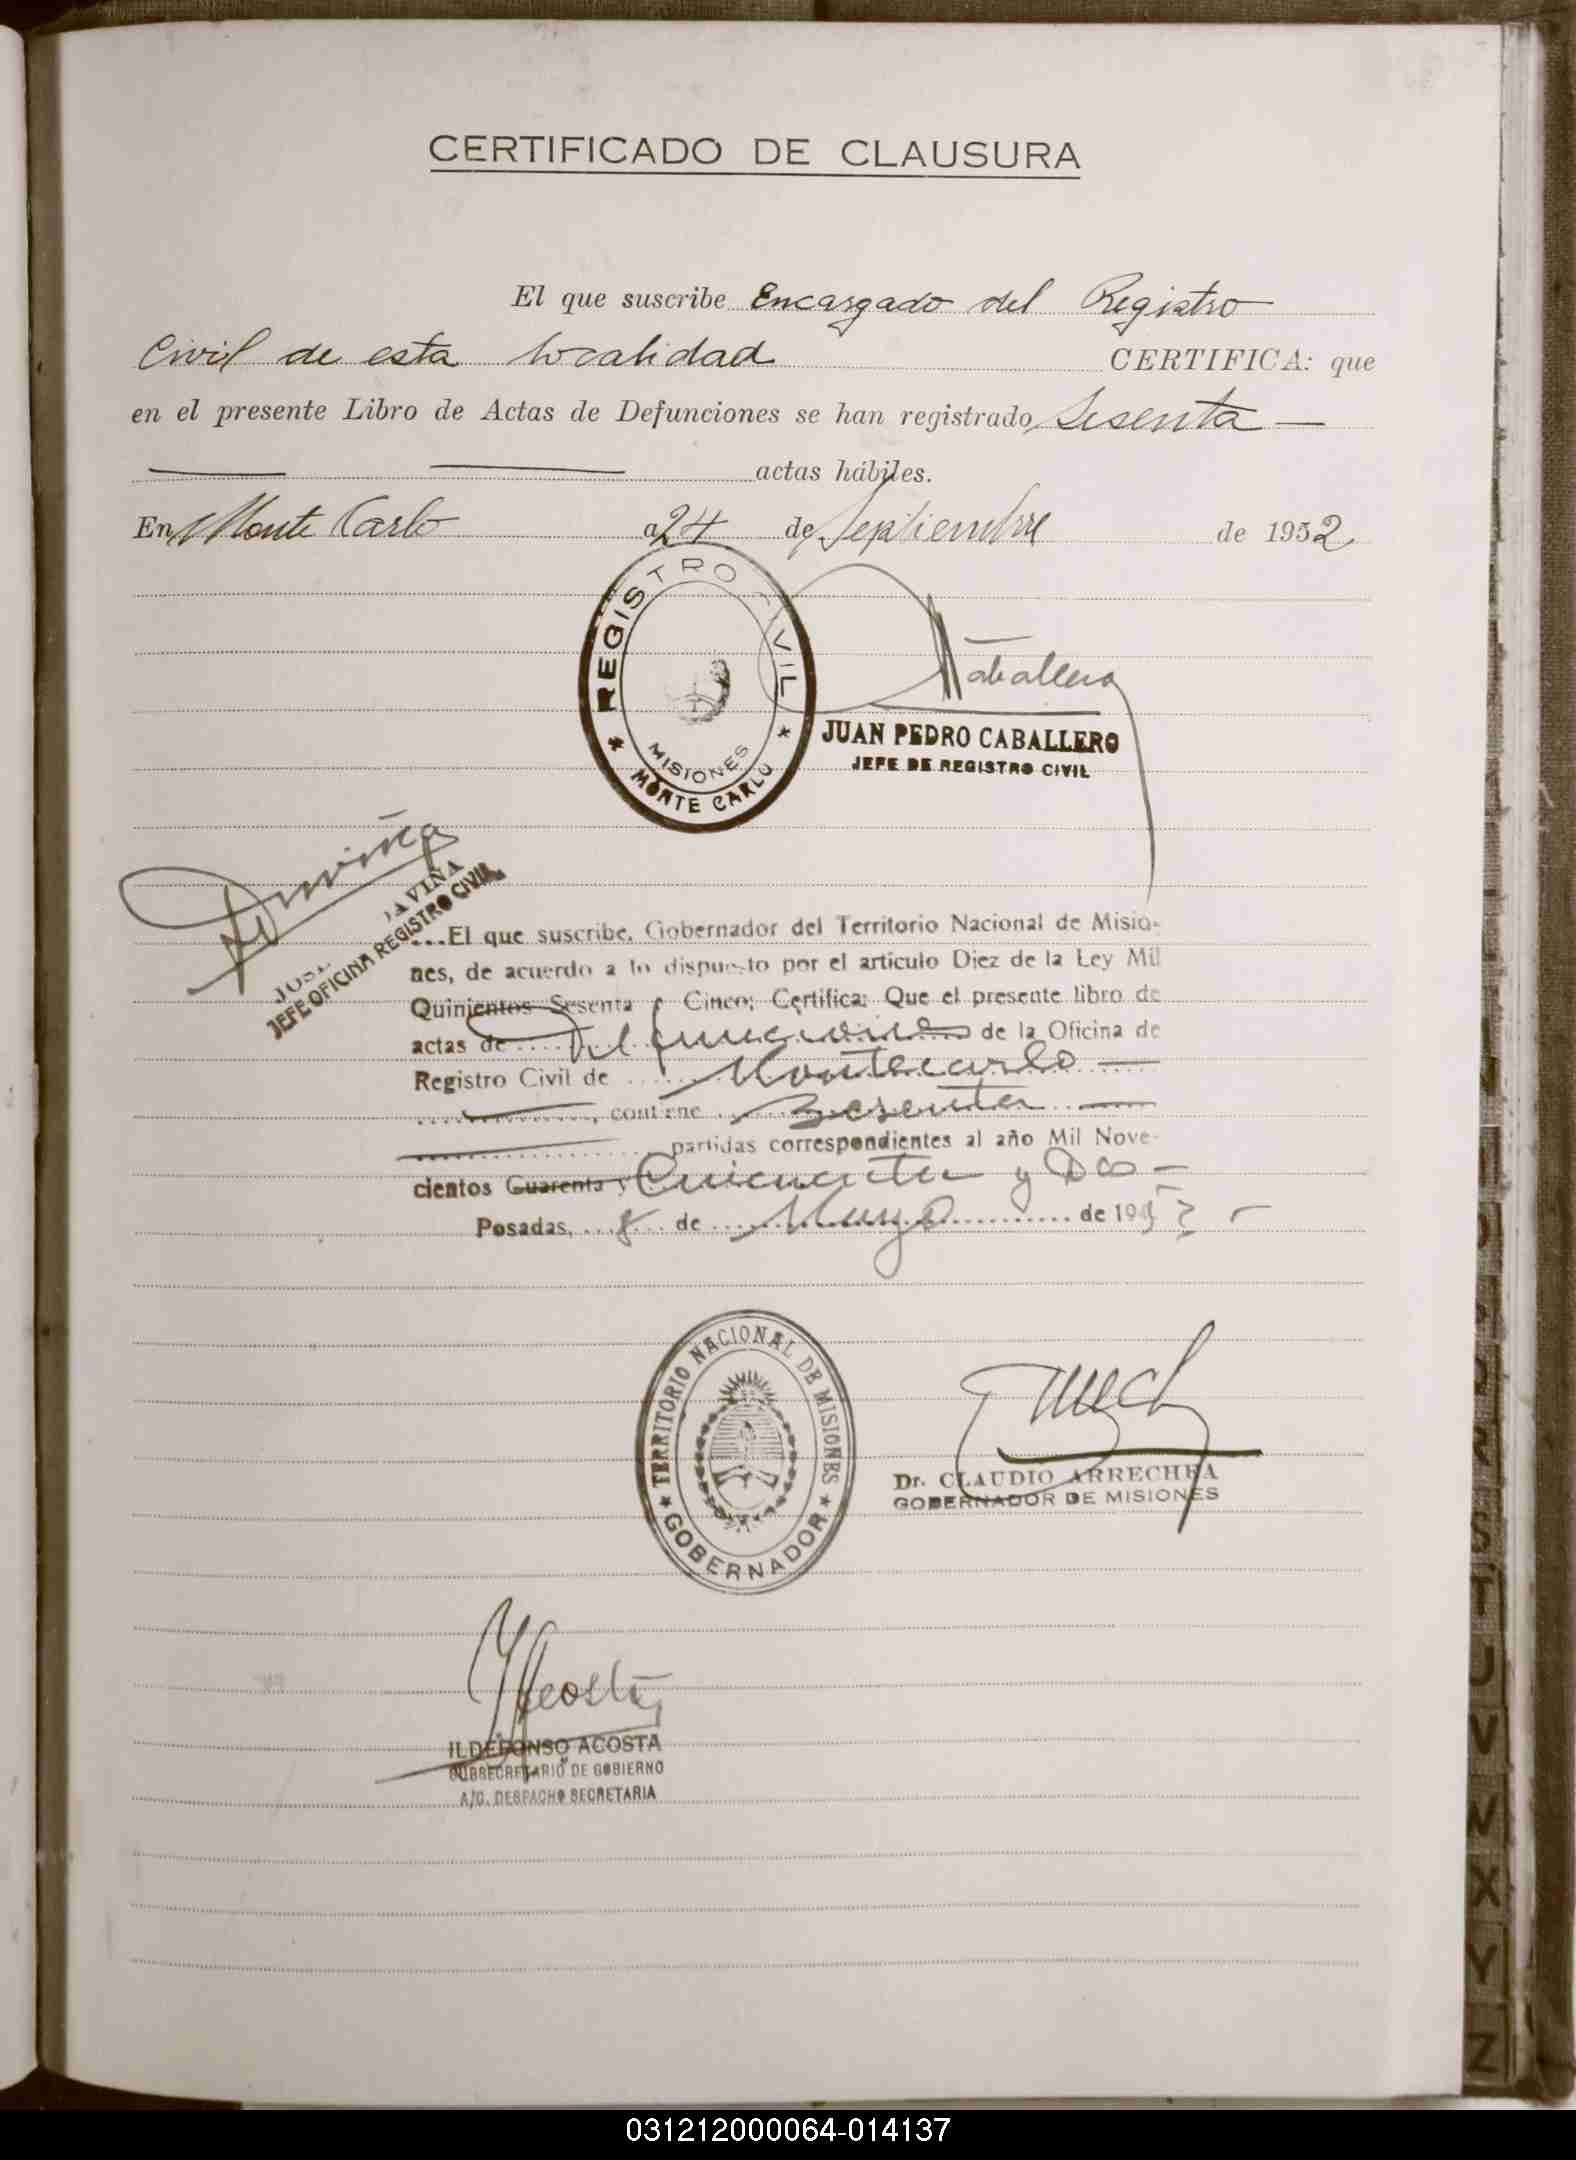 CERTIFICADO DE CLAUSURA
El que suscribe Encargado del Registro
Civil de esta localidad CERTIFICA: que
en el presente Libro de Actas de Defunciones se han registrado Sesenta —
actas hábiles.
En Monte Carlo a 24 de Septiembre de 1952
REGISTRO CIVIL
MISIONES
* MONTE CARLO *
Caballero
JUAN PEDRO CABALLERO
JEFE DE REGISTRO CIVIL
Daviña
JOSE DAVIÑA
JEFE OFICINA REGISTRO CIVIL
...El que suscribe, Gobernador del Territorio Nacional de Misio-
nes, de acuerdo a lo dispuesto por el artículo Diez de la Ley Mil
Quinientos Sesenta y Cinco; Certifica: Que el presente libro de
actas de Defunciones de la Oficina de
Registro Civil de Montecarlo —
, contiene Sesenta —
partidas correspondientes al año Mil Nove-
cientos Cuarenta y Cincuenta y Dos —
Posadas, 8 de Mayo de 195
TERRITORIO NACIONAL DE MISIONES
* GOBERNADOR *
Dr. CLAUDIO ARRECHEA
GOBERNADOR DE MISIONES
Acosta
ILDEFONSO ACOSTA
SUBSECRETARIO DE GOBIERNO
A/C. DESPACHO SECRETARIA
S
T
U
V
W
X
Y
Z
031212000064-014137